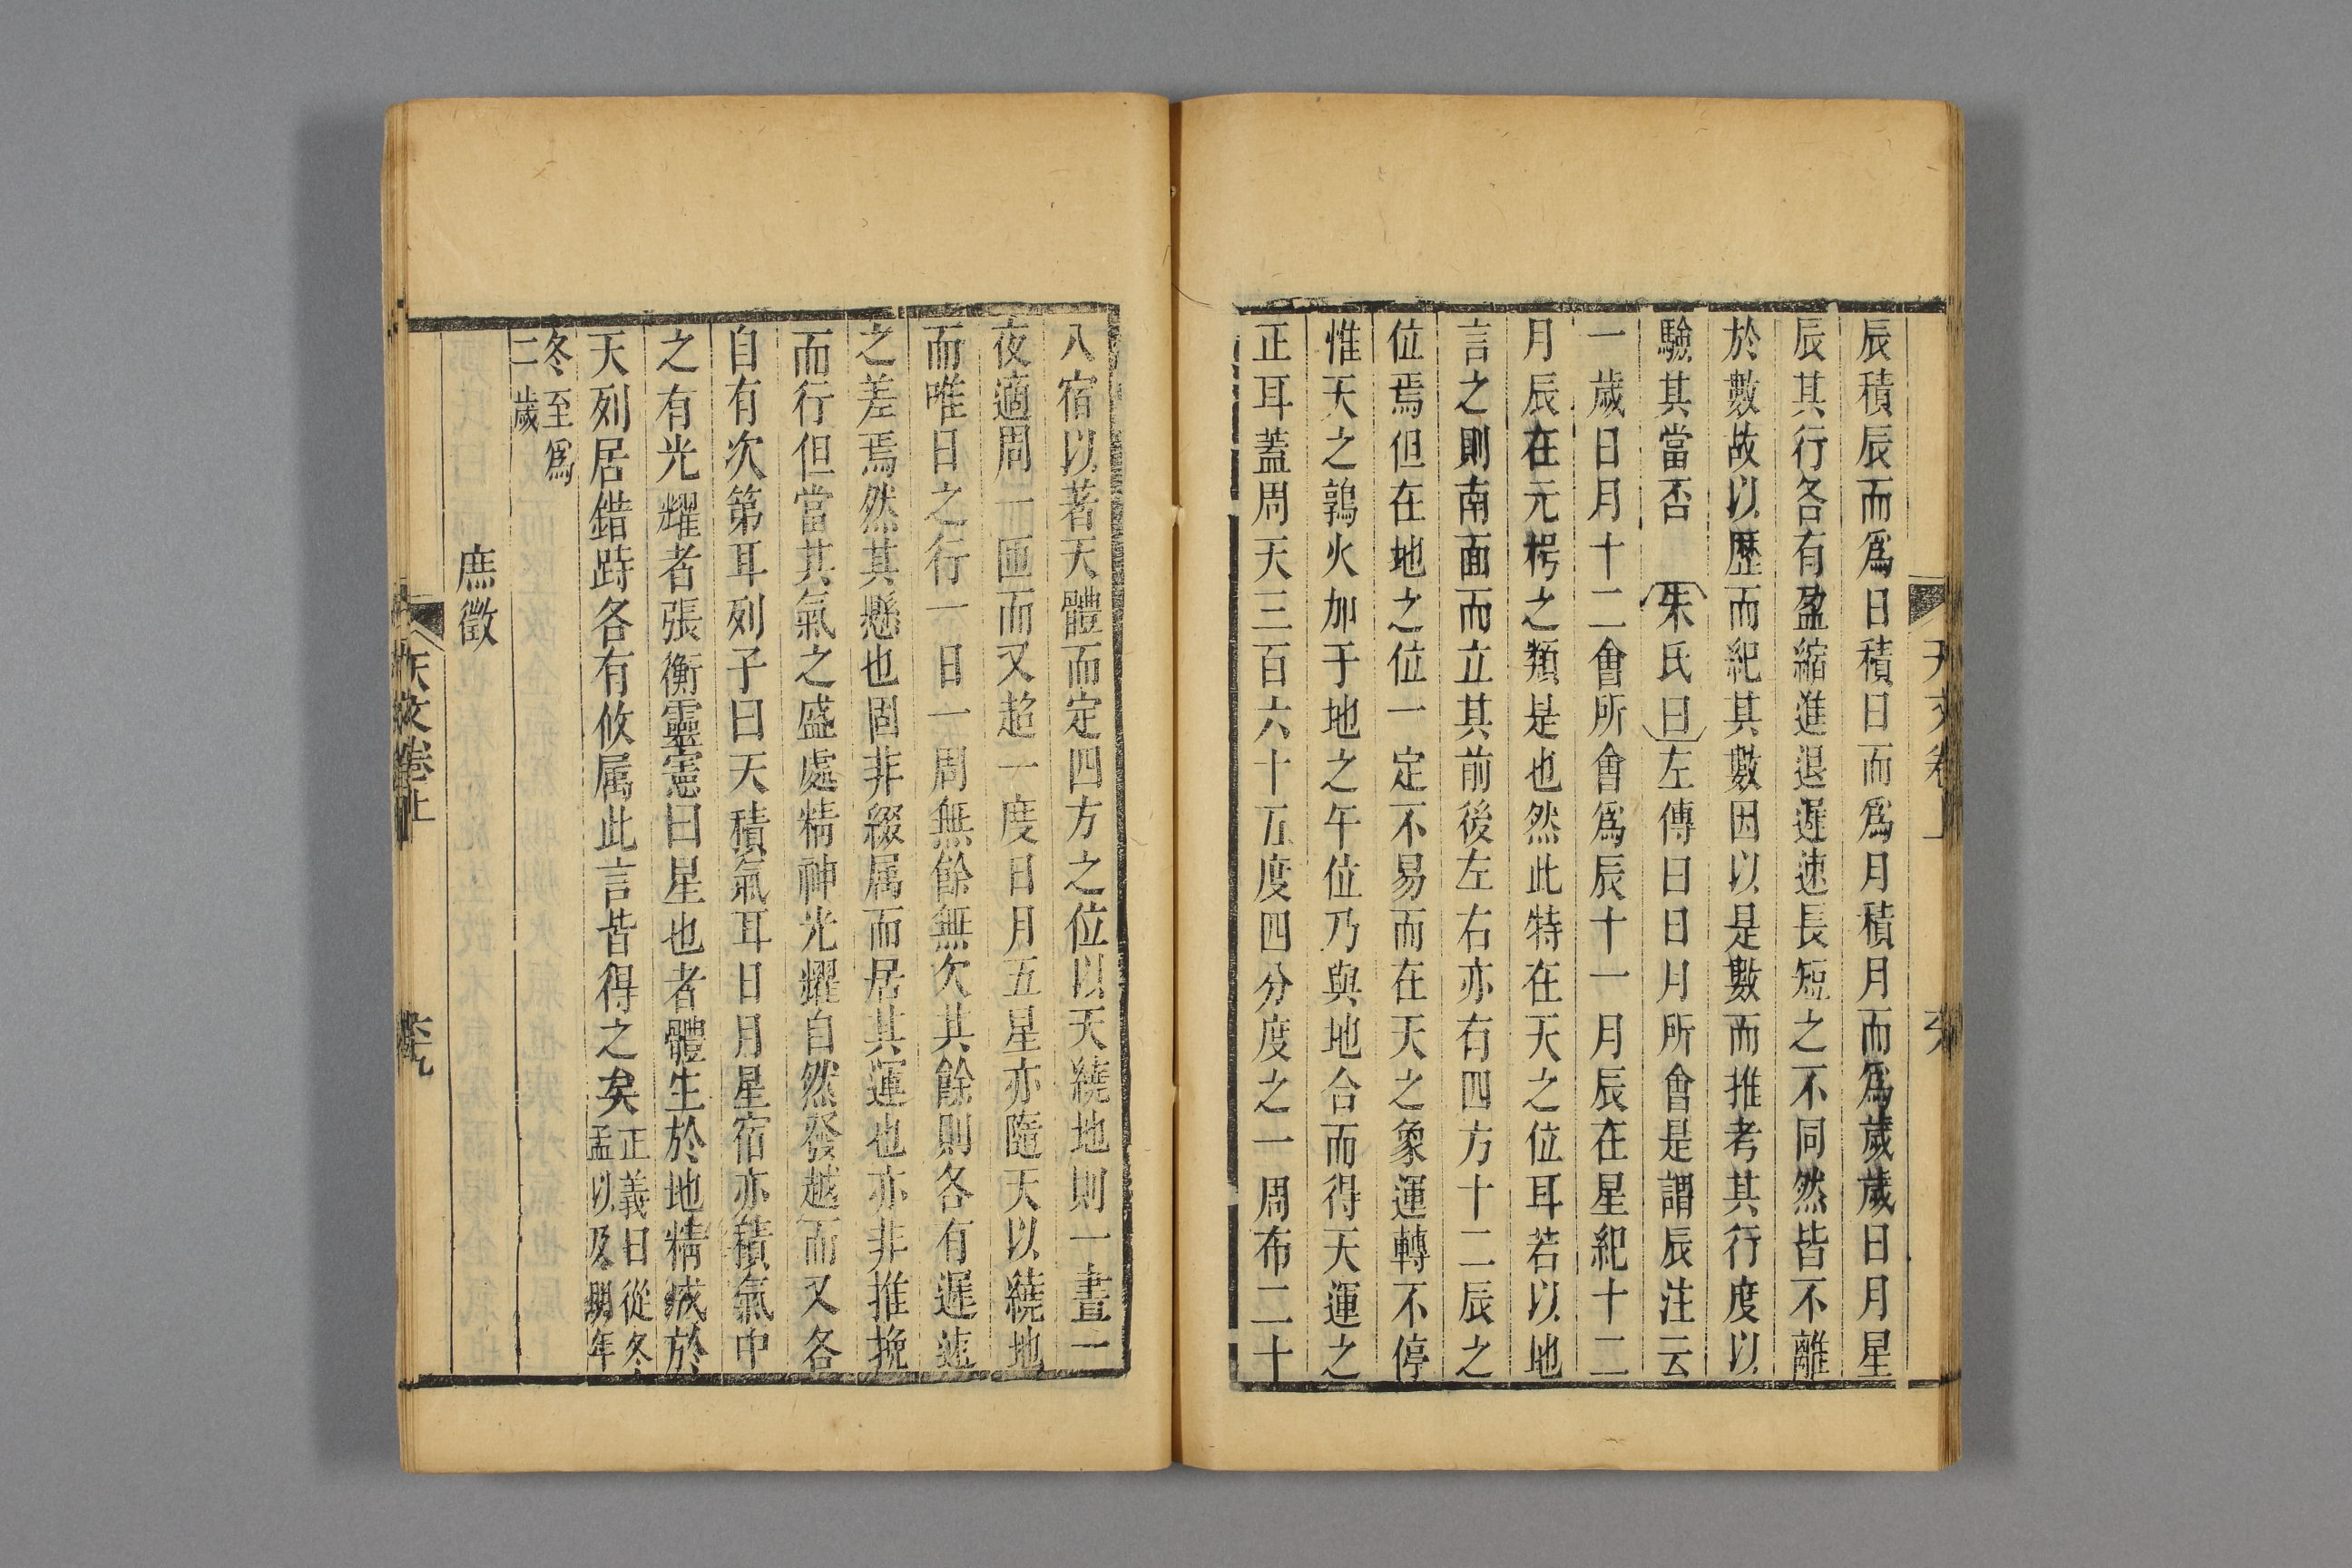 辰積辰而爲日積日而爲月積月而爲歲歲日月星
辰其行各有盈縮進退遲速長短之不同然皆不離
於數故以歷而紀其數因以是數而推考其行度以
驗其當否 朱氏曰左傳曰日月所會是謂辰注云
一歲日月十二會所會爲辰十一月辰在星紀十二
月辰在元枵之類是也然此特在天之位耳若以地
言之則南面而立其前後左右亦有四方十二辰之
位焉但在地之位一定不易而在天之象運轉不停
惟天之鶉火加于地之午位乃與地合而得天運之
正耳蓋周天三百六十五度四分度之一周布二十
八宿以著天體而定四方之位以天繞地則一晝一
夜適周一匝而又超一度日月五星亦隨天以繞地
而唯日之行一日一周無餘無欠其餘則各有遲速
之差焉然其懸也固非綴属而居其運也亦非推挽
而行但當其氣之盛處精神光耀自然發越而又各
自有次第耳列子曰天積氣耳日月星宿亦積氣中
之有光耀者張衡靈憲曰星也者體生於地精成於
天列居錯跱各有攸属此言皆得之矣
正義曰從冬
孟以及明年
冬至爲
二歲
庶徵
天文卷上